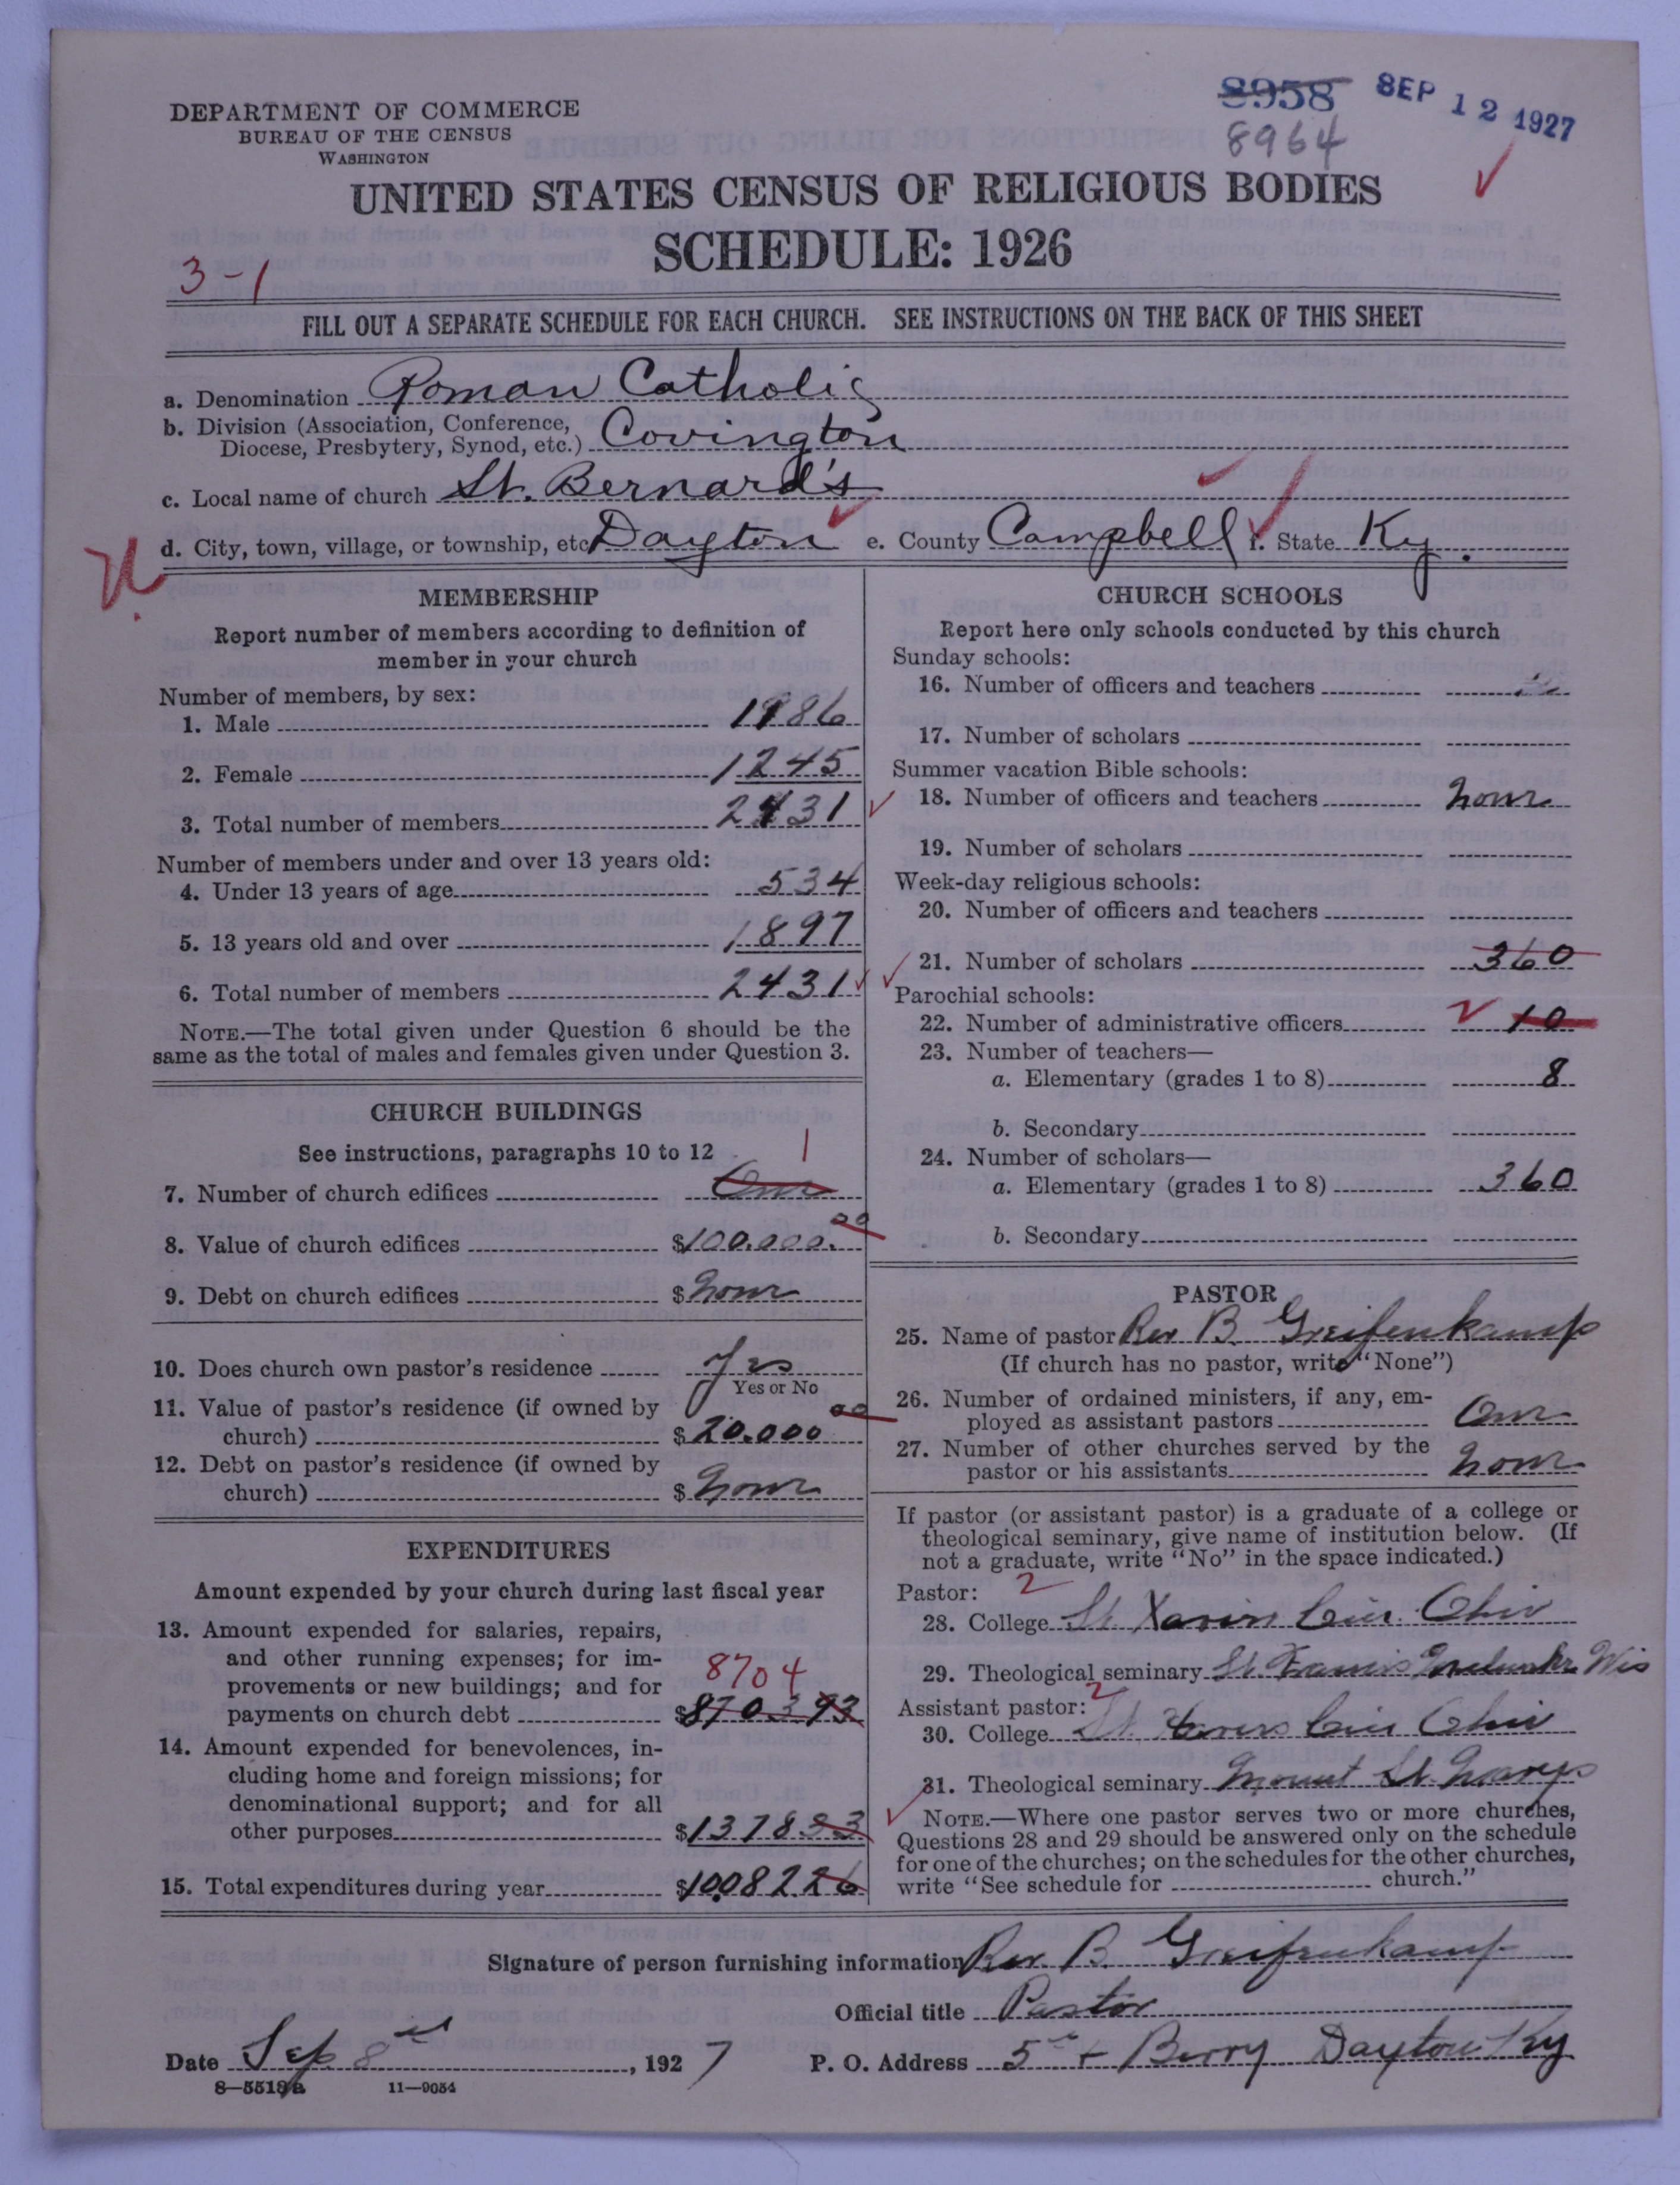 8958 SEP 12 1927
8964
DEPARTMENT OF COMMERCE
BUREAU OF THE CENSUS
WASHINGTON
UNITED STATES CENSUS OF RELIGIOUS BODIES
SCHEDULE: 1926
3-1
FILL OUT A SEPARATE SCHEDULE FOR EACH CHURCH. SEE INSTRUCTIONS ON THE BACK OF THIS SHEET
a. Denomination Roman Catholic
b. Division (Association, Conference, Diocese, Presbytery, Synod, etc.) Covington
c. Local name of church St. Bernard's
d. City, town, village, or township, etc. Dayton e. County Campbell f. State Ky.
MEMBERSHIP
Report number of members according to definition of
member in your church
Number of members, by sex:
1. Male 1186
2. Female 1245
3. Total number of members 2431
Number of members under and over 13 years old:
4. Under 13 years of age 534
5. 13 years old and over 1897
6. Total number of members 2431
NOTE.—The total given under Question 6 should be the
same as the total of males and females given under Question 3.
CHURCH BUILDINGS
See instructions, paragraphs 10 to 12
1
7. Number of church edifices One
8. Value of church edifices $100.000.00
9. Debt on church edifices $ None
10. Does church own pastor's residence Yes
Yes or No
11. Value of pastor's residence (if owned by
church) $20.000 00
12. Debt on pastor's residence (if owned by
church) $ None
EXPENDITURES
Amount expended by your church during last fiscal year
13. Amount expended for salaries, repairs,
and other running expenses; for im-
provements or new buildings; and for 8704
payments on church debt $8703 93
14. Amount expended for benevolences, in-
cluding home and foreign missions; for
denominational support; and for all
other purposes $1378 33
15. Total expenditures during year $10082 26
CHURCH SCHOOLS
Report here only schools conducted by this church
Sunday schools:
16. Number of officers and teachers
17. Number of scholars
Summer vacation Bible schools:
18. Number of officers and teachers None
19. Number of scholars
Week-day religious schools:
20. Number of officers and teachers
21. Number of scholars 360
Parochial schools:
22. Number of administrative officers 2 10
23. Number of teachers—
a. Elementary (grades 1 to 8) 8
b. Secondary
24. Number of scholars—
a. Elementary (grades 1 to 8) 360
b. Secondary
PASTOR
25. Name of pastor Rev B. Greifenkamp
(If church has no pastor, write "None")
26. Number of ordained ministers, if any, em-
ployed as assistant pastors One
27. Number of other churches served by the
pastor or his assistants None
If pastor (or assistant pastor) is a graduate of a college or
theological seminary, give name of institution below. (If
not a graduate, write "No" in the space indicated.)
Pastor: 2
28. College St. Xaviers Cin. Ohio
29. Theological seminary St. Francis Milwaukee Wis
Assistant pastor: 2
30. College St. Xaviers Cin Ohio
31. Theological seminary Mount St. Marys
NOTE.—Where one pastor serves two or more churches,
Questions 28 and 29 should be answered only on the schedule
for one of the churches; on the schedules for the other churches,
write "See schedule for church."
Signature of person furnishing information Rev. B. Greifenkamp
Official title Pastor
Date Sep 8, 1927 P. O. Address 5th + Berry Dayton Ky
8—5518a 11—9054